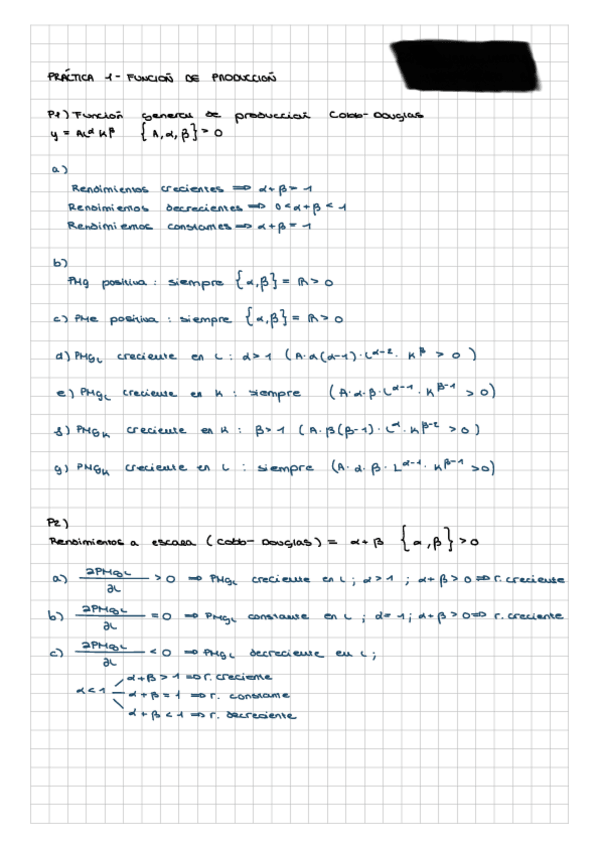 PRÁCTICA 1 - FUNCIÓN DE PRODUCCIÓN
P1) Función general de producción Cobb-Douglas
y = AL^α K^β {A, α, β} > 0
a)
Rendimientos crecientes ⇒ α+β > 1
Rendimientos decrecientes ⇒ 0 < α+β < 1
Rendimientos constantes ⇒ α+β = 1
b)
PMg positiva : siempre {α,β} = ℝ > 0
c) PMe positiva : siempre {α,β} = ℝ > 0
d) PMg_L creciente en L : α > 1 (A·α(α-1)·L^(α-2)·K^β > 0)
e) PMg_L creciente en K : siempre (A·α·β·L^(α-1)·K^(β-1) > 0)
f) PMg_K creciente en K : β > 1 (A·β(β-1)·L^α·K^(β-2) > 0)
g) PMg_K creciente en L : siempre (A·α·β·L^(α-1)·K^(β-1) > 0)
P2)
Rendimientos a escala (Cobb-Douglas) = α+β {α,β} > 0
a) ∂PMg_L/∂L > 0 ⇒ PMg_L creciente en L ; α > 1 ; α+β > 0 ⇒ r. creciente
b) ∂PMg_L/∂L = 0 ⇒ PMg_L constante en L ; α = 1 ; α+β > 0 ⇒ r. creciente
c) ∂PMg_L/∂L < 0 ⇒ PMg_L decreciente en L ;
α+β > 1 ⇒ r. creciente
α < 1 α+β = 1 ⇒ r. constante
α+β < 1 ⇒ r. decreciente